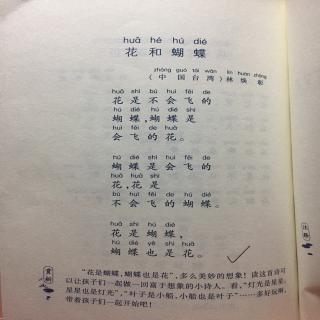 huā hé hú dié
花和蝴蝶
zhōng guó tái wān lín huàn zhāng
(中国台湾) 林焕彰
huā shì bú huì fēi de
花是不会飞的
hú dié hú dié shì
蝴蝶,蝴蝶是
huì fēi de huā
会飞的花。
hú dié shì huì fēi de
蝴蝶是会飞的
huā huā shì
花,花是
bú huì fēi de hú dié
不会飞的蝴蝶。
huā shì hú dié
花是蝴蝶,
hú dié yě shì huā
蝴蝶也是花。
“花是蝴蝶,蝴蝶也是花”,多么美妙的想象!读这首诗可
以让孩子们一起做一回富于想象的小诗人。看,“灯光是星星,
星星也是灯光”,“叶子是小船,小船也是叶子”……多好玩啊,
带着孩子们一起开始吧!
赏析